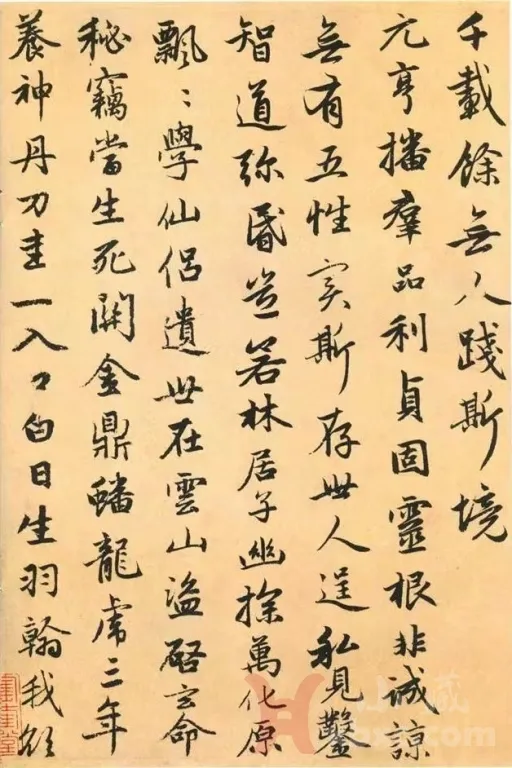 千載餘無人踐斯境
元亨播羣品利貞固靈根非誠諒
無有五性實斯存世人逞私見鑿
智道弥昏豈若林居子幽探萬化原
飄〻學仙侶遺世在雲山盜啓玄命
秘竊當生死關金鼎蟠龍虎三年
養神丹刀圭一入口白日生羽翰我欲